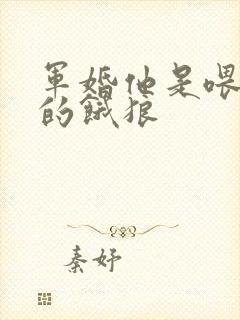 軍婚他是喂
的餓狼
秦妤